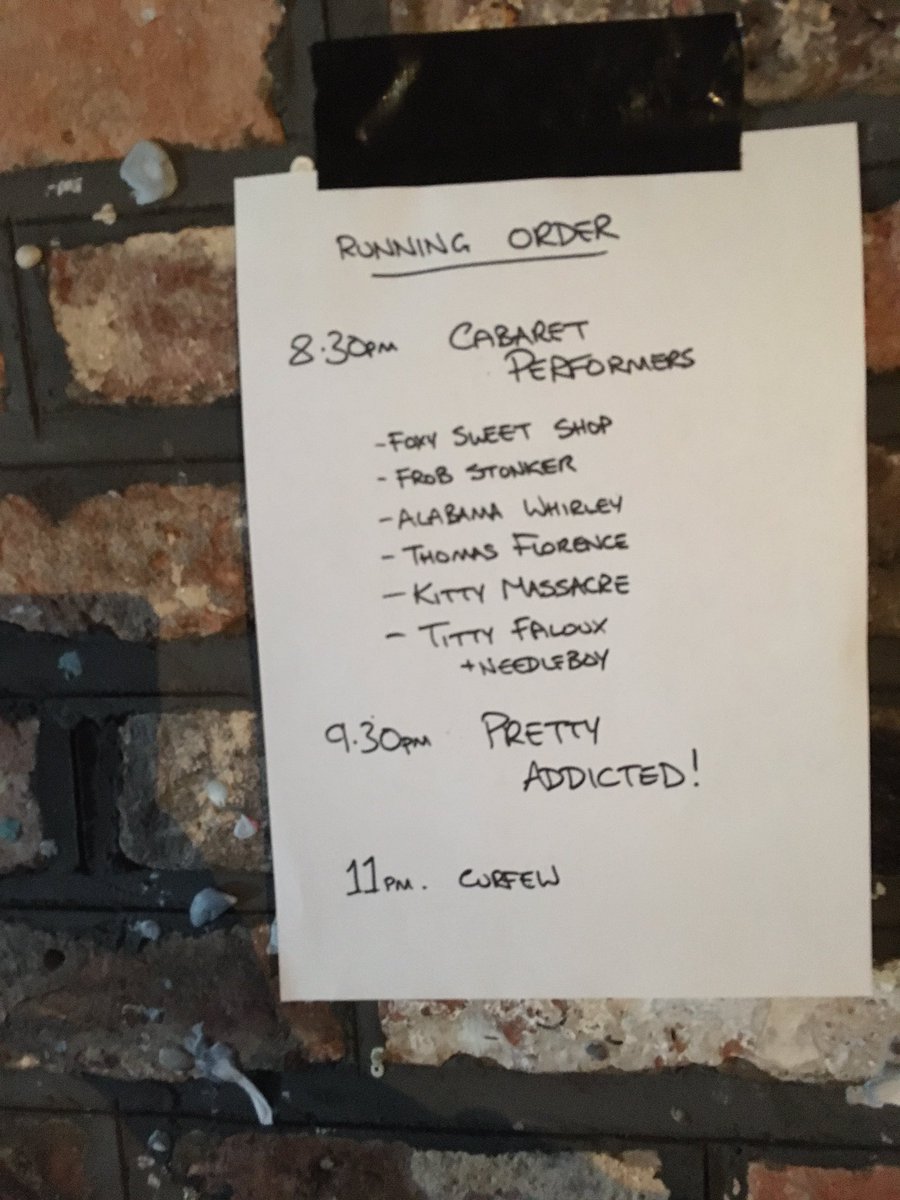 RUNNING ORDER
8.30PM CABARET
PERFORMERS
- FOXY SWEET SHOP
- FROB STONKER
- ALABAMA WHIRLEY
- THOMAS FLORENCE
- KITTY MASSACRE
- TITTY FALOUX
+ NEEDLEBOY
9.30PM PRETTY
ADDICTED!
11PM. CURFEW